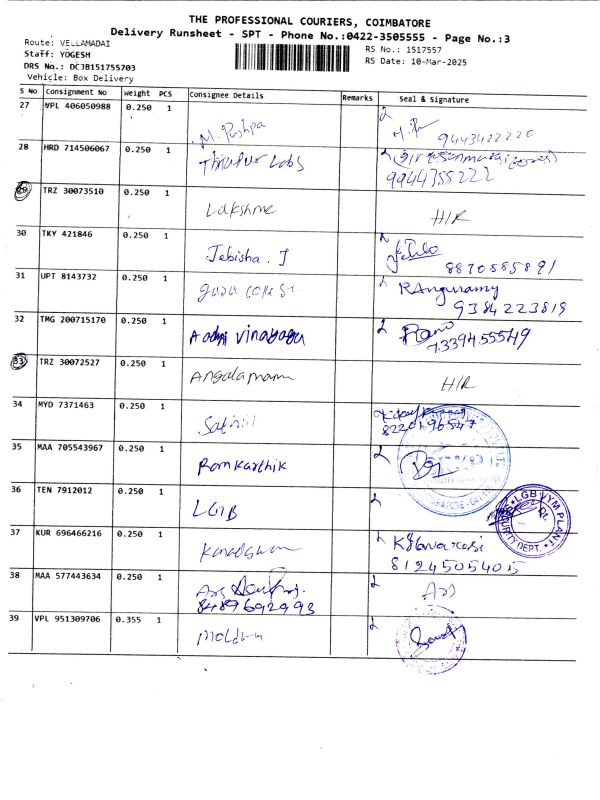 THE PROFESSIONAL COURIERS, COIMBATORE
Delivery Runsheet - SPT - Phone No.:0422-3505555 - Page No.:3
Route: VELLAMADAI
RS No.: 1517557
Staff: YOGESH
RS Date: 10-Mar-2025
DRS No.: DCJB151755703
Vehicle: Box Delivery
S No Consignment No Weight PCS Consignee Details Remarks Seal & Signature
27 VPL 406050988 0.250 1 M. Pushpa 9443422220
28 HRD 714506067 0.250 1 Thirupur Labs 9944355222
29 TRZ 30073510 0.250 1 Lakshme H/R
30 TKY 421846 0.250 1 Jebisha. J 8870585891
31 UPT 8143732 0.250 1 RAnguramy
9384223819
32 TMG 200715170 0.250 1 Aadhi vinayaga 7339455549
33 TRZ 30072527 0.250 1 Angalamam H/R
34 MYD 7371463 0.250 1 8220196547
35 MAA 705543967 0.250 1 Ramkarthik
36 TEN 7912012 0.250 1 LGB
LGB VYM PLANT
SECURITY DEPT.
37 KUR 696466216 0.250 1
8124505405
38 MAA 577443634 0.250 1 Ars Ars
8489692993
39 VPL 951309706 0.355 1